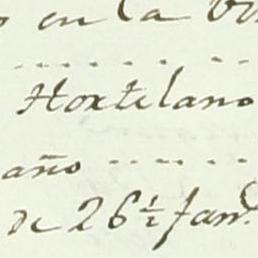 en la
Hortelano
año
de 26 ½ fan.